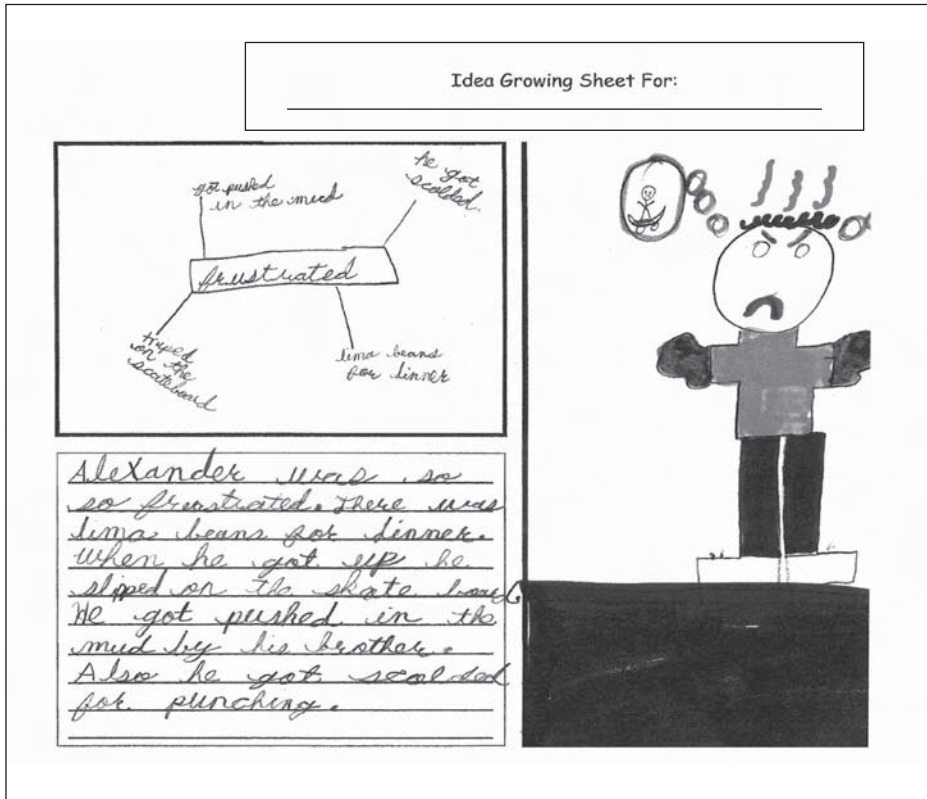 Idea Growing Sheet For:
got pushed
in the mud
he got
scolded.
frustrated
triped
on the
scateboard
lima beans
for dinner
Alexander was so
so frustrated. There was
lima beans for dinner.
When he got up he
slipped on the skate board.
He got pushed in the
mud by his brother.
Also he got scolded
for punching.